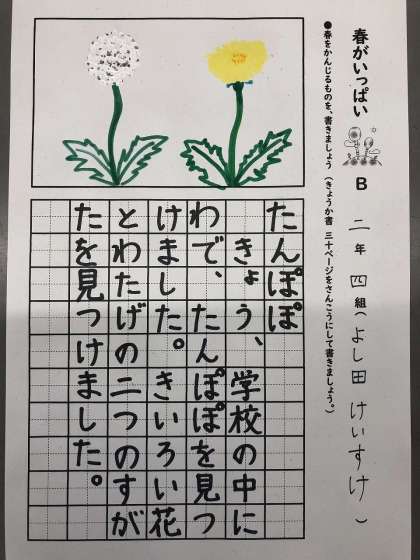 春がいっぱい B 二年 四組（よし田 けいすけ）
●春をかんじるものを、書きましょう（きょうか書 三十ページをさんこうにして書きましょう。）
たんぽぽ
きょう、学校の中に
わで、たんぽぽを見つ
けました。きいろい花
とわたげの二つのすが
たを見つけました。